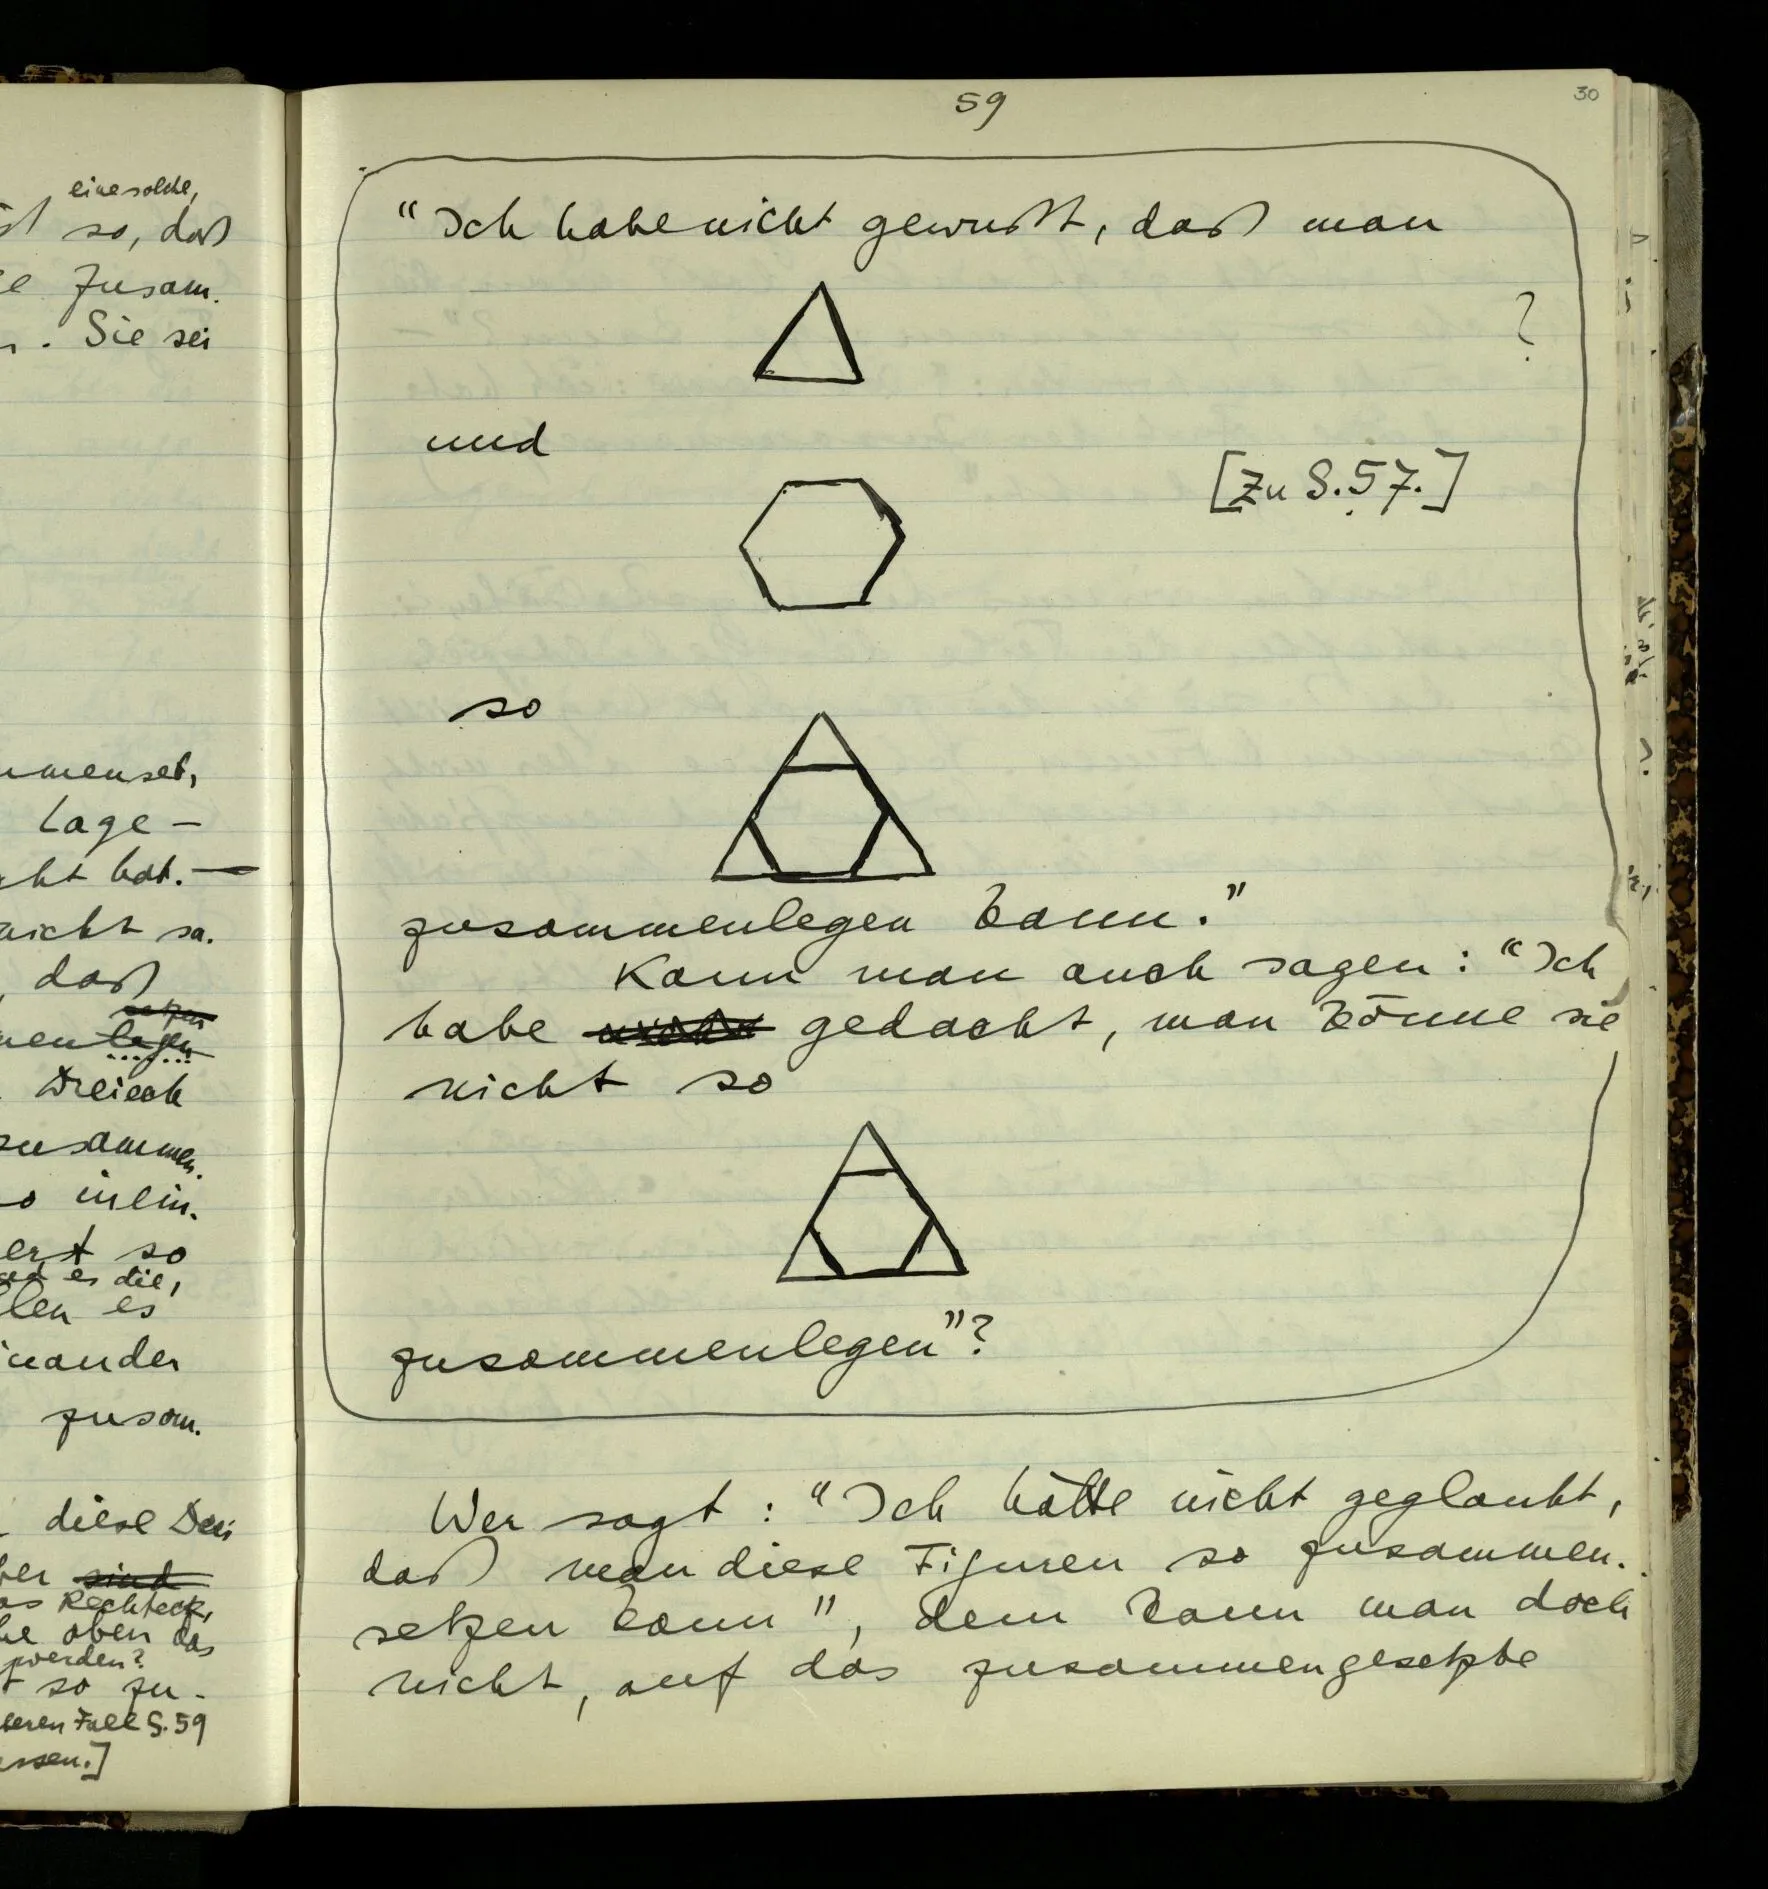 eine solche,
so, daß
Zusam.
. Sie sei
Lage –
cht hat. —
nicht sa.
, daß
setzen
legen
Dreieck
zusammen.
inein.
ert so
es die,
len es
inander
zusam.
diese Drei
sind
Rechteck,
oben das
werden?
so zu-
Fall S. 59
ssen.]
59
30
“Ich habe nicht gewußt, daß man
?
und
[Zu S. 57.]
so
zusammenlegen kann.”
Kann man auch sagen: “Ich
habe gedacht, man könne sie
nicht so
zusammenlegen”?
Wer sagt: “Ich hätte nicht geglaubt,
daß man diese Figuren so zusammen-
setzen kann”, dem kann man doch
nicht, auf das zusammengesetzte